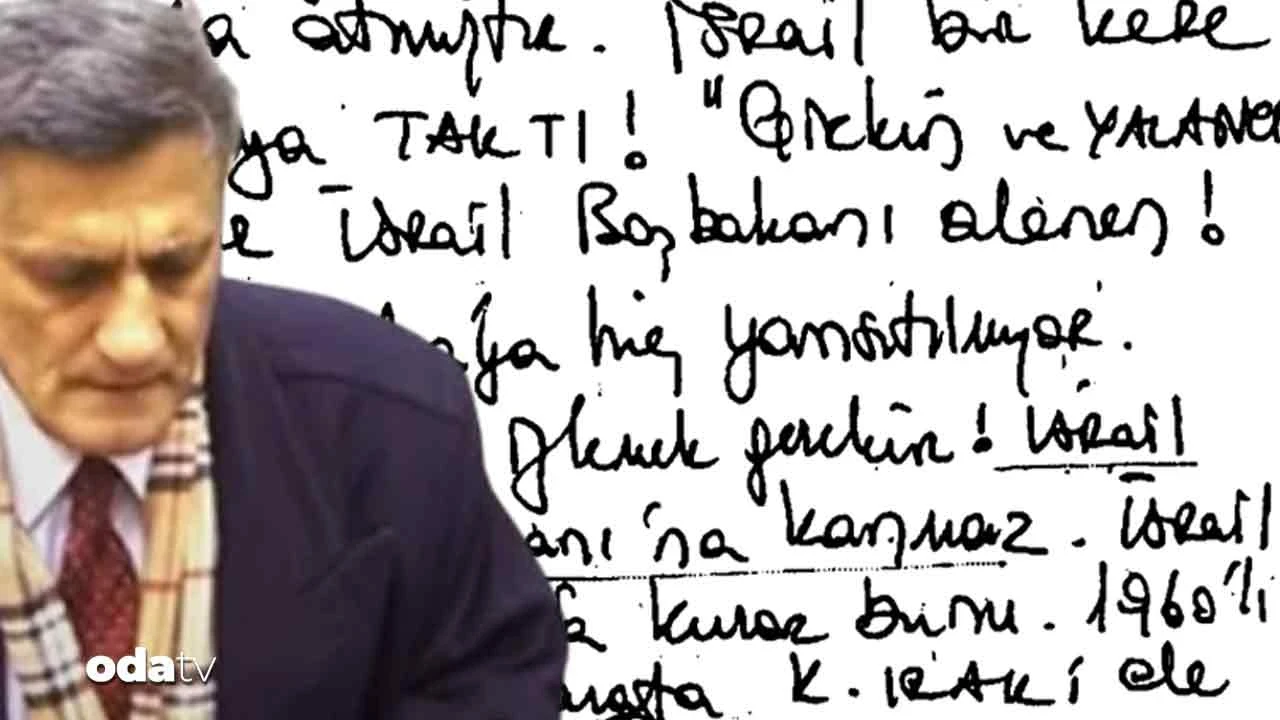 atmıştır. İsrail bir kere
ya TAKTI! "Çirkin ve YALANCI
İsrail Başbakanı alenen!
hiç yansıtılmıyor.
gerekir! İsrail
anı'na karışmaz. İsrail
kurar bunu. 1960'lı
K. IRAK'ı de
odatv